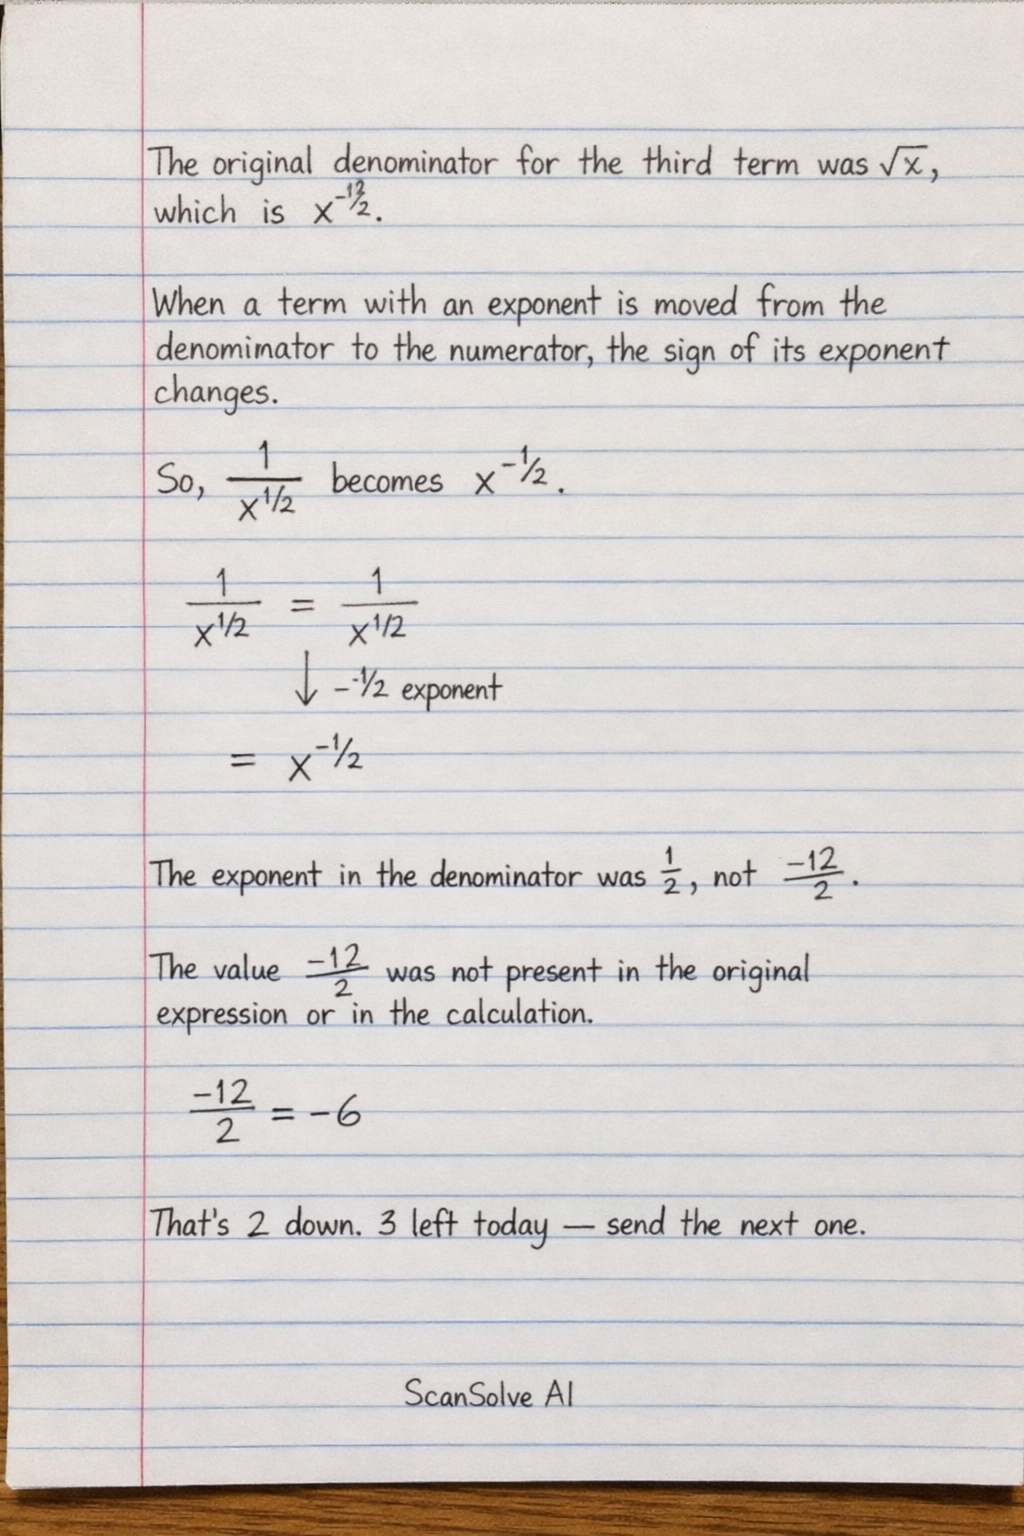 The original denominator for the third term was √x,
which is x^-12/2.
When a term with an exponent is moved from the
denomimator to the numerator, the sign of its exponent
changes.
So, 1/x^1/2 becomes x^-1/2.
1/x^1/2 = 1/x^1/2
↓ --1/2 exponent
= x^-1/2
The exponent in the denominator was 1/2, not -12/2.
The value -12/2 was not present in the original
expression or in the calculation.
-12/2 = -6
That's 2 down. 3 left today — send the next one.
ScanSolve AI